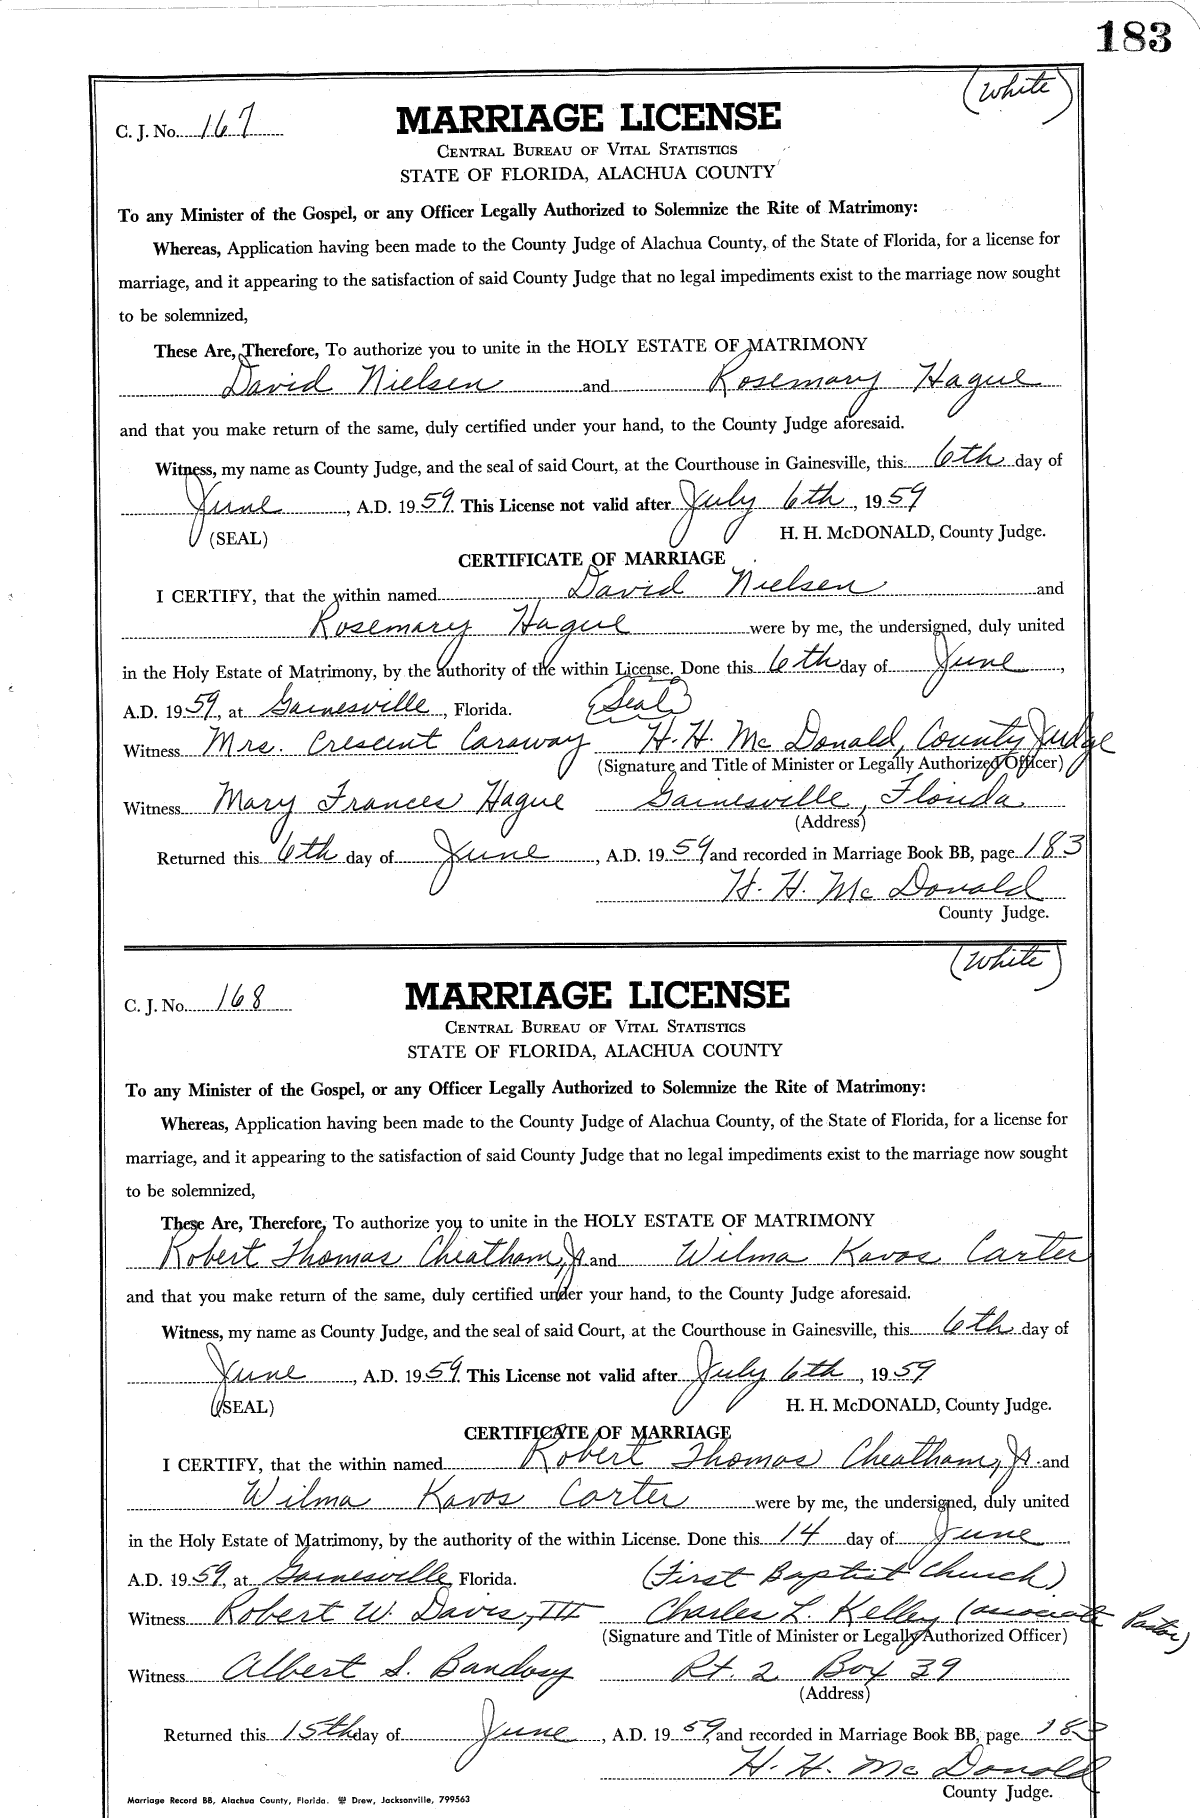 183
(White)
C. J. No. 167
MARRIAGE LICENSE
CENTRAL BUREAU OF VITAL STATISTICS
STATE OF FLORIDA, ALACHUA COUNTY
To any Minister of the Gospel, or any Officer Legally Authorized to Solemnize the Rite of Matrimony:
Whereas, Application having been made to the County Judge of Alachua County, of the State of Florida, for a license for
marriage, and it appearing to the satisfaction of said County Judge that no legal impediments exist to the marriage now sought
to be solemnized,
These Are, Therefore, To authorize you to unite in the HOLY ESTATE OF MATRIMONY
David Nielsen and Rosemary Hague
and that you make return of the same, duly certified under your hand, to the County Judge aforesaid.
Witness, my name as County Judge, and the seal of said Court, at the Courthouse in Gainesville, this 6th day of
June, A.D. 1959. This License not valid after July 6th, 1959
(SEAL) H. H. McDONALD, County Judge.
CERTIFICATE OF MARRIAGE
I CERTIFY, that the within named David Nielsen and
Rosemary Hague were by me, the undersigned, duly united
in the Holy Estate of Matrimony, by the authority of the within License. Done this 6th day of June,
A.D. 1959, at Gainesville, Florida. (Seal)
Witness Mrs. Crescent Caraway H. H. McDonald, County Judge
(Signature and Title of Minister or Legally Authorized Officer)
Witness Mary Frances Hague Gainesville, Florida
(Address)
Returned this 6th day of June, A.D. 1959, and recorded in Marriage Book BB, page 183
H. H. McDonald
County Judge.
(White)
C. J. No. 168
MARRIAGE LICENSE
CENTRAL BUREAU OF VITAL STATISTICS
STATE OF FLORIDA, ALACHUA COUNTY
To any Minister of the Gospel, or any Officer Legally Authorized to Solemnize the Rite of Matrimony:
Whereas, Application having been made to the County Judge of Alachua County, of the State of Florida, for a license for
marriage, and it appearing to the satisfaction of said County Judge that no legal impediments exist to the marriage now sought
to be solemnized,
These Are, Therefore, To authorize you to unite in the HOLY ESTATE OF MATRIMONY
Robert Thomas Cheatham, Jr. and Wilma Kavos Carter
and that you make return of the same, duly certified under your hand, to the County Judge aforesaid.
Witness, my name as County Judge, and the seal of said Court, at the Courthouse in Gainesville, this 6th day of
June, A.D. 1959. This License not valid after July 6th, 1959
(SEAL) H. H. McDONALD, County Judge.
CERTIFICATE OF MARRIAGE
I CERTIFY, that the within named Robert Thomas Cheatham, Jr. and
Wilma Kavos Carter were by me, the undersigned, duly united
in the Holy Estate of Matrimony, by the authority of the within License. Done this 14 day of June
A.D. 1959, at Gainesville, Florida. (First Baptist Church)
Witness Robert W. Davis, III Charles L. Kelley (associate Pastor)
(Signature and Title of Minister or Legally Authorized Officer)
Witness Albert S. Bandosy Rt. 2 Box 39
(Address)
Returned this 15th day of June, A.D. 1959, and recorded in Marriage Book BB, page 183
H. H. McDonald
County Judge.
Marriage Record BB, Alachua County, Florida. Drew, Jacksonville, 799563